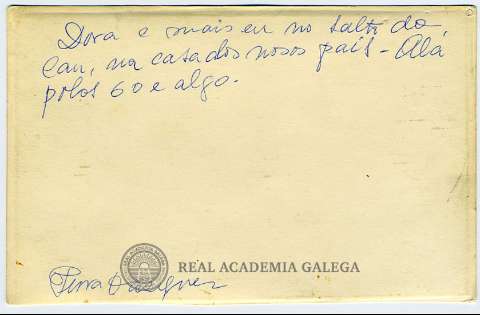 Dora e mais eu no Salto do
Can, na casa dos nosos pais - Alá
polos 60 e algo.
REAL ACADEMIA GALEGA